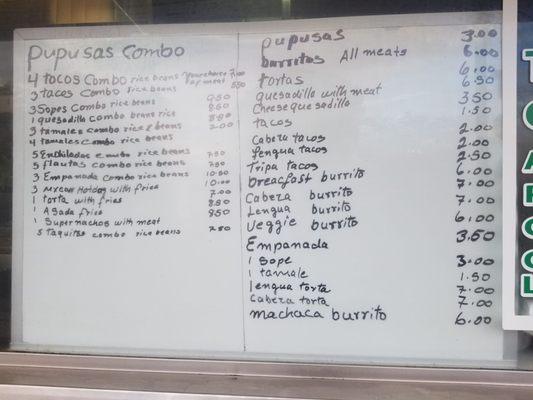 Pupusas Combo
4 tacos Combo rice beans Your choice of any meat 7.00
3 tacos Combo rice beans 5.50
3 Sopes Combo rice beans 9.50
1 quesadilla combo beans rice 8.50
3 tamales combo rice & beans 8.50
4 tamales combo rice beans 2.00
5 Enchiladas combo rice beans 7.50
5 flautas combo rice beans 7.50
3 Empanada combo rice beans 10.50
3 Mexican Hotdog with fries 10.00
1 torta with fries 7.00
1 Asada fries 8.50
1 Super nachos with meat 8.50
5 taquitos combo rice beans 7.50
Pupusas 3.00
burritos All meats 6.00
tortas 6.00
quesadilla with meat 6.50
Cheese quesadilla 3.50
tacos 1.50
Cabeza tacos 2.00
lengua tacos 2.00
Tripa tacos 2.50
breacfast burrito 6.00
Cabeza burrito 7.00
Lengua burrito 7.00
Veggie burrito 6.00
Empanada 3.50
1 Sope 3.00
1 tamale 1.50
lengua torta 7.00
Cabeza torta 7.00
machaca burrito 6.00